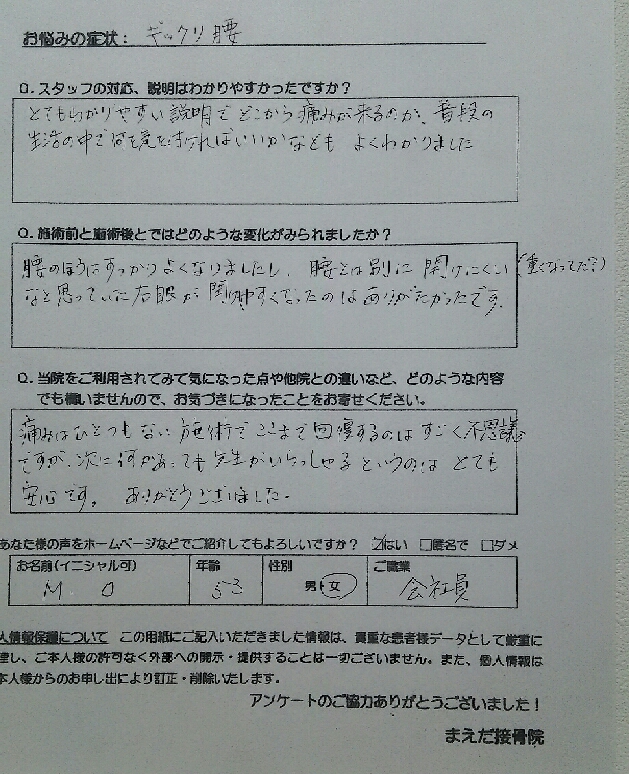 お悩みの症状： ギックリ腰
Q. スタッフの対応、説明はわかりやすかったですか？
とてもわかりやすい説明で どこから痛みが来るのか、普段の
生活の中で何を意識すればいいかなども よくわかりました
Q. 施術前と施術後とではどのような変化がみられましたか？
腰のほうはすっかりよくなりましたし、腰とは別に 開けにくい(重くなってた？)
なと思っていた右眼が開けやすくなったのはありがたかったです。
Q. 当院をご利用されてみて気になった点や他院との違いなど、どのような内容
でも構いませんので、お気づきになったことをお寄せください。
痛みはひとつもない施術でここまで回復するのはすごく不思議
ですが、次に何かあっても先生がいらっしゃるというのは とても
安心です。 ありがとうございました。
あなた様の声をホームページなどでご紹介してもよろしいですか？ ☑はい □匿名で □ダメ
お名前(イニシャル可) 年齢 性別 ご職業
M O 53 男・女 会社員
人情報保護について この用紙にご記入いただきました情報は、貴重な患者様データとして厳重に
理し、ご本人様の許可なく外部への開示・提供することは一切ございません。また、個人情報は
本人様からのお申し出により訂正・削除いたします。
アンケートのご協力ありがとうございました！
まえだ接骨院